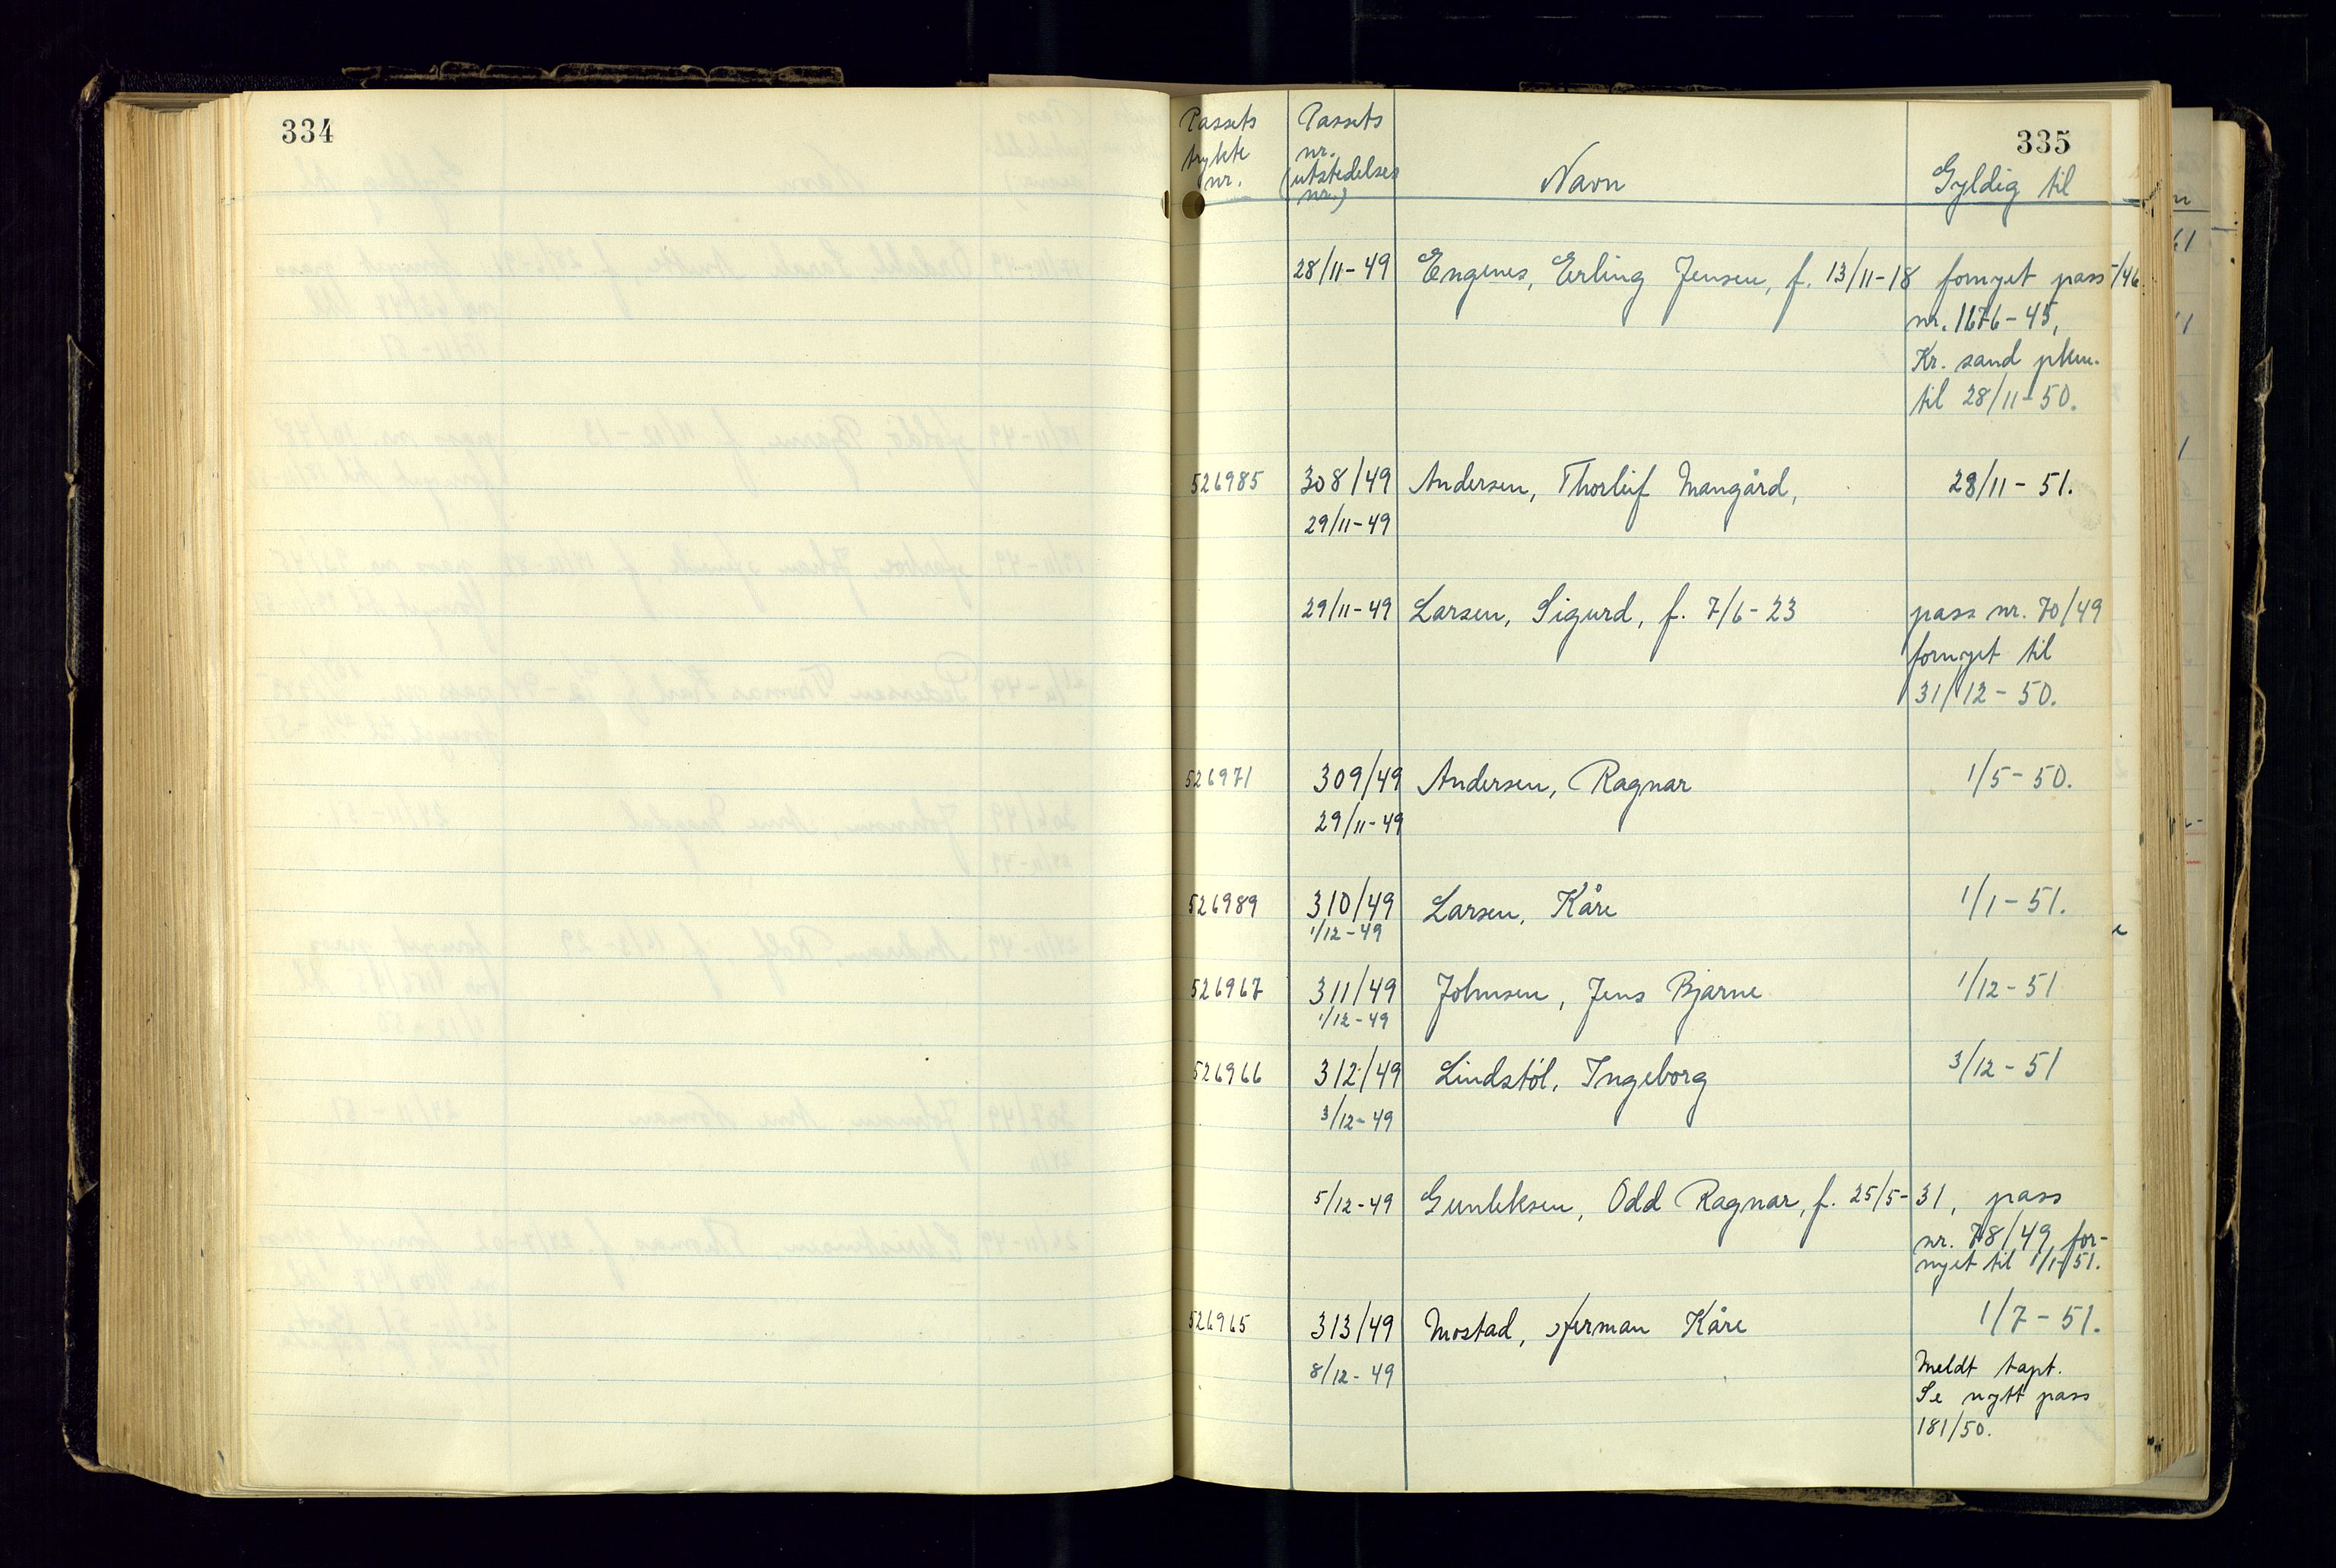 334
335
Passets trykte nr.
Passets nr. (utstedelses nr.)
Navn
Gyldig til
28/11-49 Engenes, Erling Jensen, f. 13/11-18 fornyet pass
nr. 1676-45,
Kr. sand pkm.
til 28/11-50.
526985 308/49 Andersen, Thorleif Mangård, 28/11-51.
29/11-49
29/11-49 Larsen, Sigurd, f. 7/6-23 pass nr. 70/49
fornyet til
31/12-50.
526971 309/49 Andersen, Ragnar 1/5-50.
29/11-49
526989 310/49 Larsen, Kåre 1/1-51.
1/12-49
526967 311/49 Johnsen, Jens Bjarne 1/12-51
1/12-49
526966 312/49 Lindstøl, Ingeborg 3/12-51
3/12-49
5/12-49 Gunleksen, Odd Ragnar, f. 25/5-31, pass
nr. 78/49 for-
nyet til 1/1-51.
526965 313/49 Mostad, Herman Kåre 1/7-51.
8/12-49 Meldt tapt.
Se nytt pass
181/50.